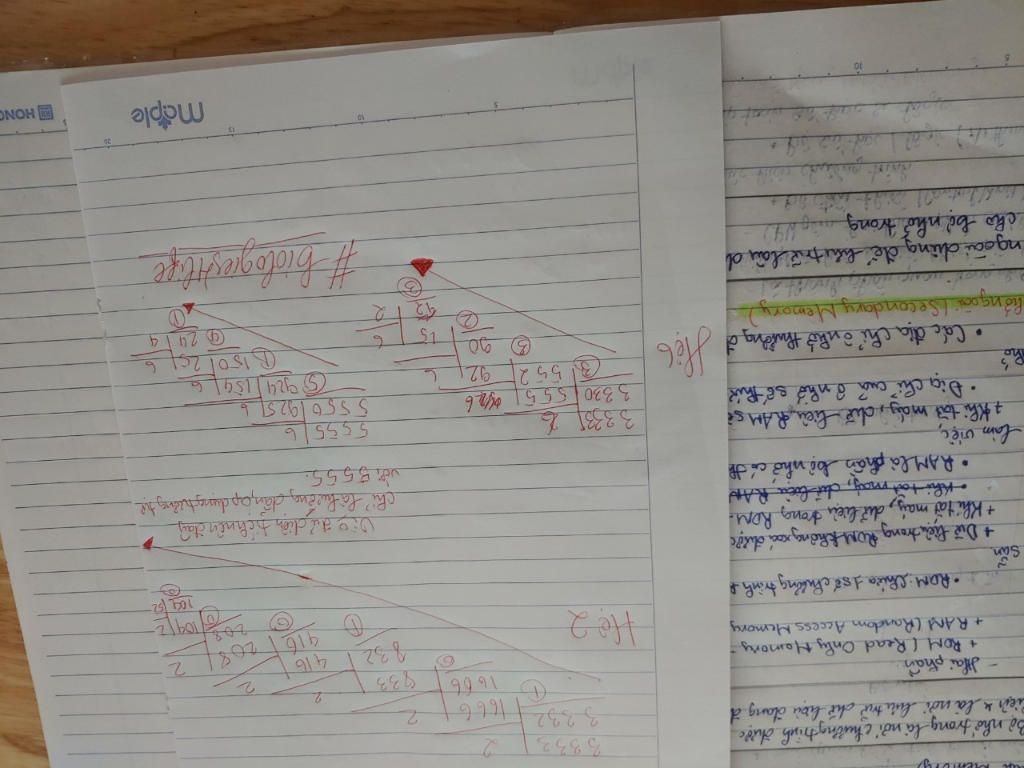 Memory)
Bộ nhớ trong là nơi chương trình được
& là nơi lưu trữ dữ liệu đang đ
- Hai phần:
+ ROM (Read Only Memory
+ RAM (Random Access Memory
• ROM: Chứa 1 số chương trình
sẵn
+ Dữ liệu trong ROM không xoá được
+ Khi tắt máy, dữ liệu trong ROM
• Khi tắt máy, dữ liệu RAM
• RAM là phần bộ nhớ có th
làm việc,
+ Khi tắt máy, dữ liệu RAM s
• Địa chỉ của ô nhớ số thứ
nhớ
• Các địa chỉ ô nhớ thường đ
ngoài (Secondary Memory)
ngoài dùng để lưu trữ lâu d
cho bộ nhớ trong
Hệ 2
3333 2
3332 1666 2
1 1666 833 2
0 832 416 2
1 416 208 2
0 208 104 2
0 104 52
0
Vì
chỉ là hướng dẫn, áp dụng tương tự
với 5555.
Hệ 6
3333 6
3330 555 6
3 552 92 6
3 90 15 6
2 12 2
3
5555 6
5550 925 6
5 924 154 6
1 150 25 6
4 24 4
1
#biologieshype
maple
5
10
15
20
5
10
HONG